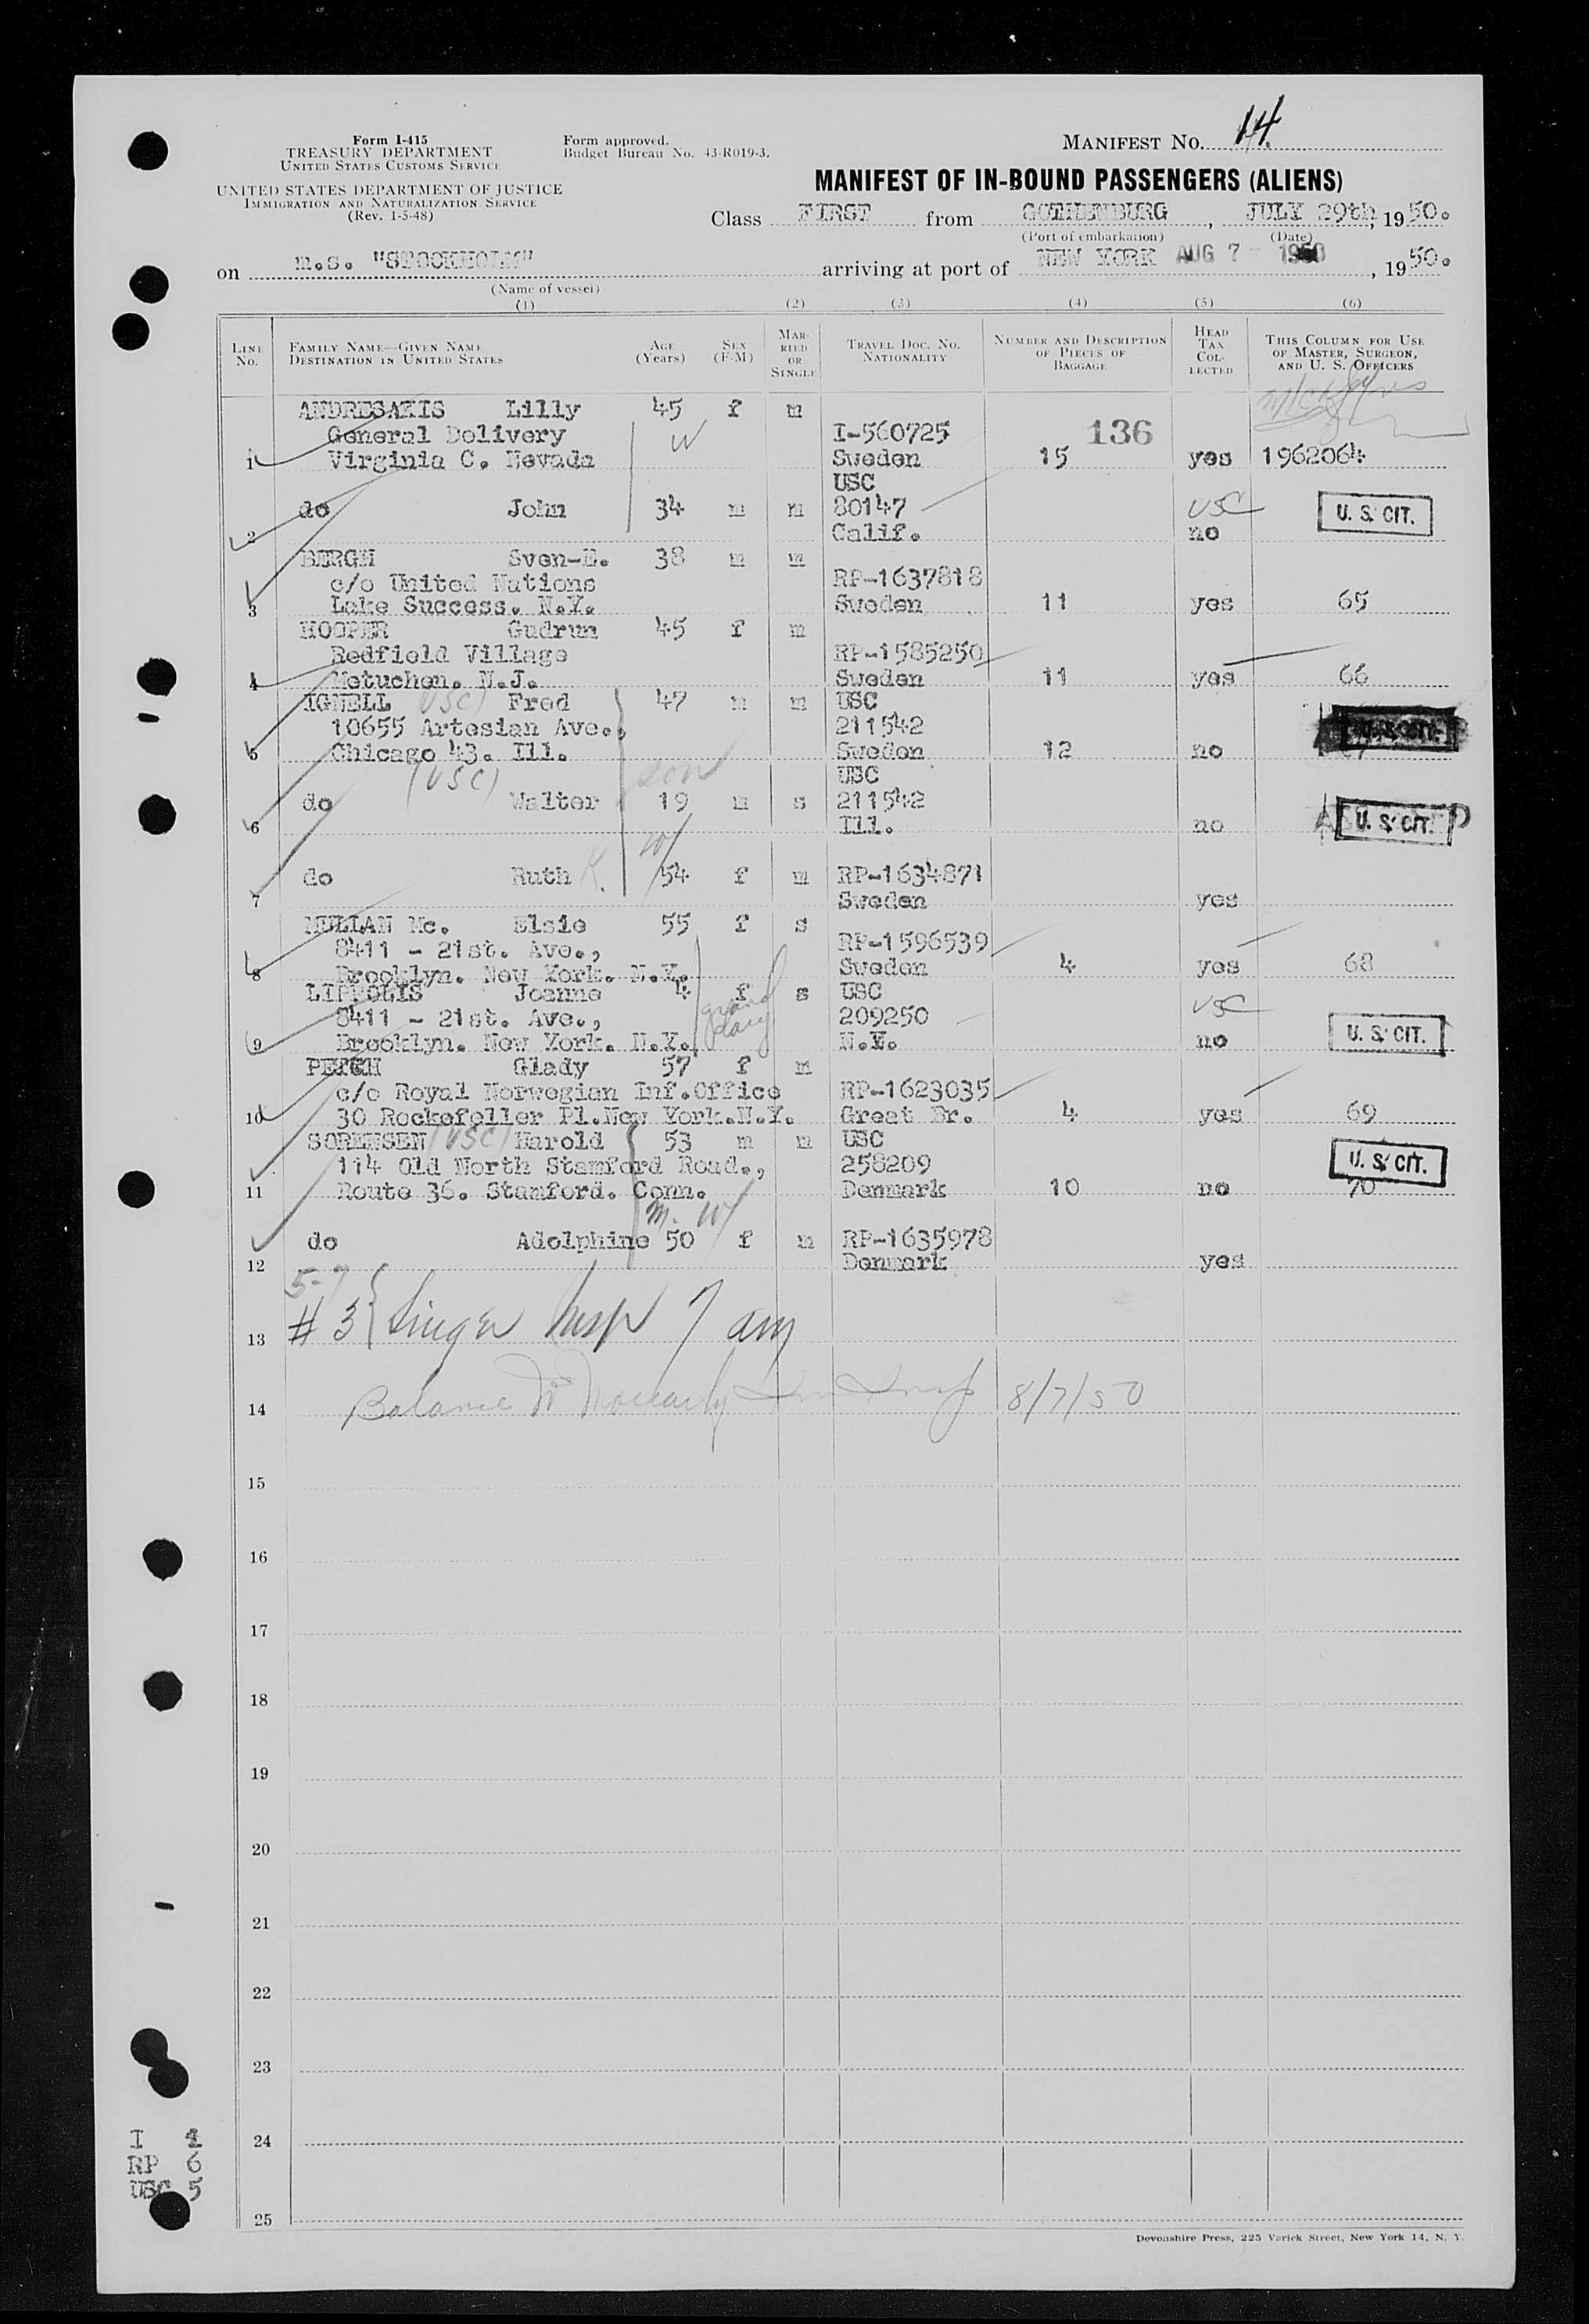 Form I-415
TREASURY DEPARTMENT
UNITED STATES CUSTOMS SERVICE
UNITED STATES DEPARTMENT OF JUSTICE
IMMIGRATION AND NATURALIZATION SERVICE
(Rev. 1-5-48)
Form approved.
Budget Bureau No. 43-R019-3.
MANIFEST NO. 14
MANIFEST OF IN-BOUND PASSENGERS (ALIENS)
Class FIRST from GOTHENBURG, JULY 29th, 1950.
(Port of embarkation) (Date)
on m.s. "STOCKHOLM" arriving at port of NEW YORK AUG 7 - 1950, 1950.
(Name of vessel)
(1) (2) (3) (4) (5) (6)
LINE No. FAMILY NAME—GIVEN NAME DESTINATION IN UNITED STATES AGE (Years) SEX (F-M) MARRIED OR SINGLE TRAVEL DOC. NO. NATIONALITY NUMBER AND DESCRIPTION OF PIECES OF BAGGAGE HEAD TAX COLLECTED THIS COLUMN FOR USE OF MASTER, SURGEON, AND U. S. OFFICERS
ANDRESAKIS Lilly 45 f m
General Delivery W I-560725 136
1 Virginia C. Nevada Sweden 15 yes 1962064
USC
do John 34 m m 80147 USC U. S. CIT.
2 Calif. no
BERGH Sven-E. 38 m m
c/o United Nations RP-1637818
3 Lake Success. N.Y. Sweden 11 yes 65
HOOPER Gudrun 45 f m
Redfield Village RP-1585250
4 Metuchen. N.J. Sweden 11 yes 66
IGNELL (USC) Fred 47 m m USC
10655 Artesian Ave., 211542 U. S. CIT.
5 Chicago 43. Ill. Sweden 12 no
(USC) son USC
do Walter 19 m s 211542
6 Ill. no U. S. CIT.
W
do Ruth K. 54 f m RP-1634871
7 Sweden yes
MULLAN Mc. Elsie 55 f s
8411 - 21st. Ave., RP-1596539
8 Brooklyn. New York. N.Y. Sweden 4 yes 68
LIPPOLIS Joanne 4 f s USC
8411 - 21st. Ave., grand 209250 USC
9 Brooklyn. New York. N.Y. N.Y. no U. S. CIT.
PETCH Glady 57 f m
c/o Royal Norwegian Inf.Office RP-1623035
10 30 Rockefeller Pl.New York.N.Y. Great Br. 4 yes 69
SORENSEN (USC) Harold 53 m m USC
114 Old North Stamford Road., 258209 U. S. CIT.
11 Route 36. Stamford. Conn. Denmark 10 no 70
m. W
do Adolphine 50 f m RP-1635978
12 Denmark yes
5-7
13 #3
14 Balance 8/7/50
15
16
17
18
19
20
21
22
23
24
25
I 1
RP 6
USC 5
Devonshire Press, 225 Varick Street, New York 14, N. Y.